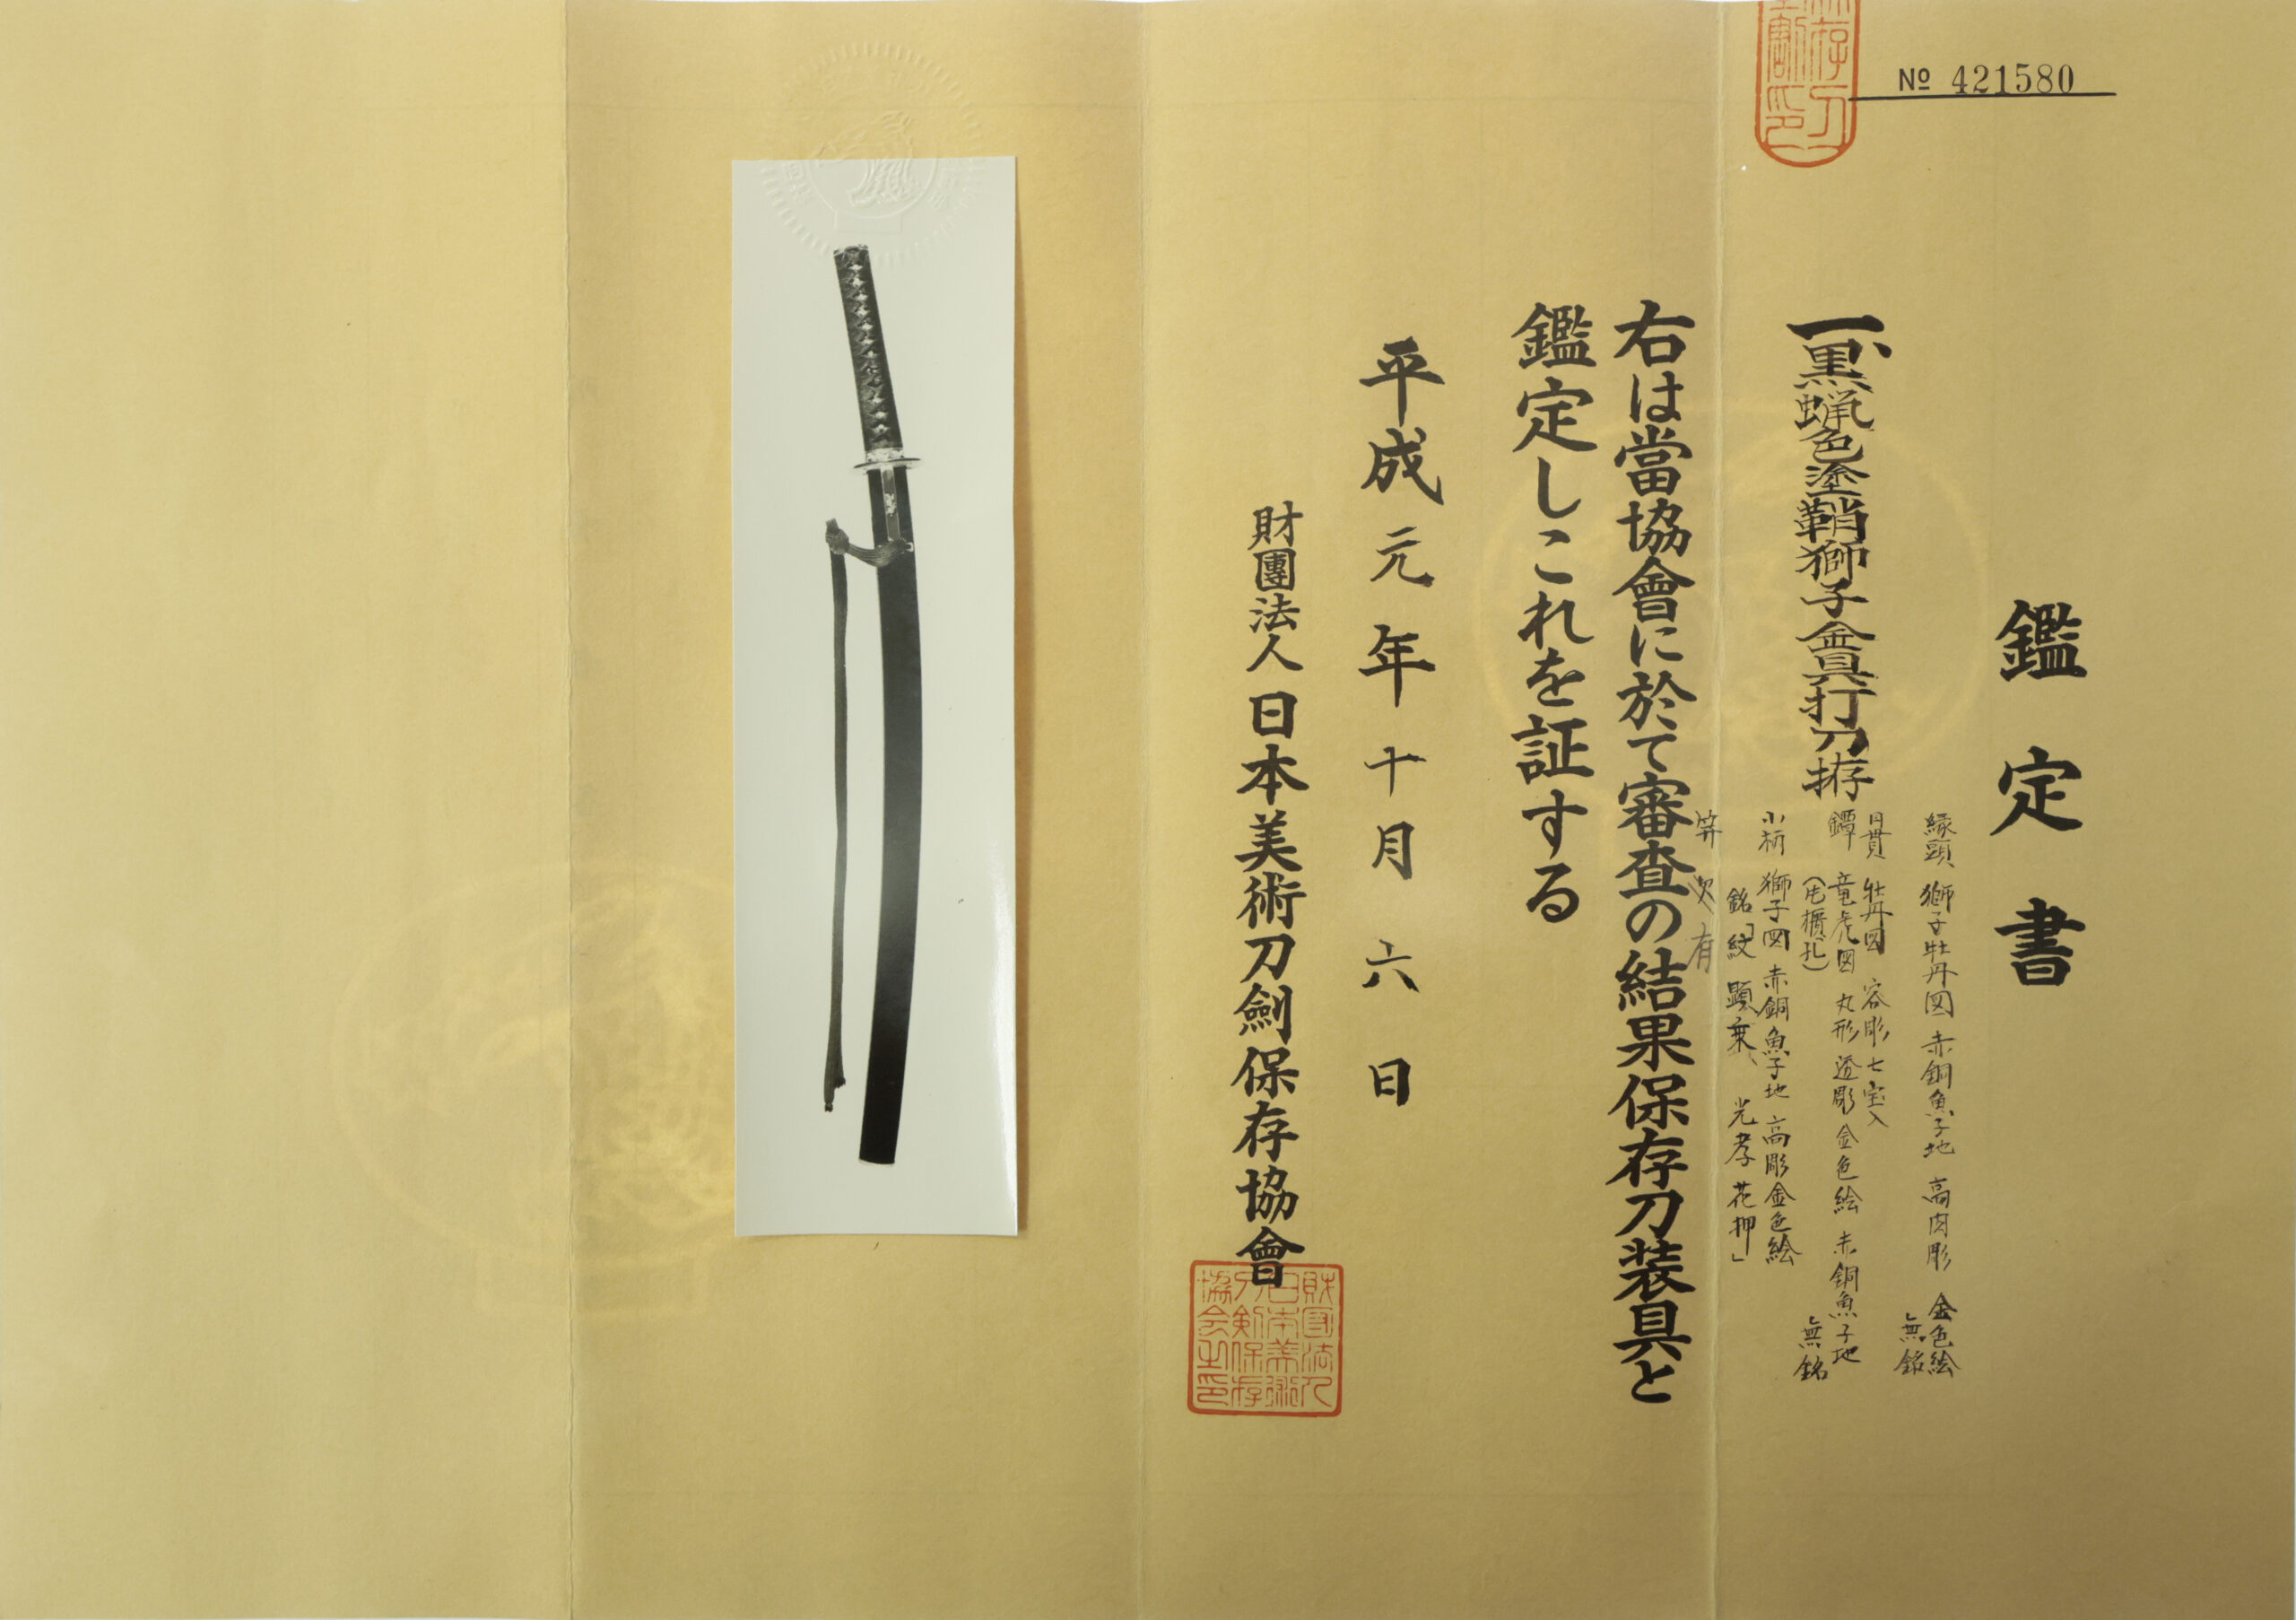 № 421580
鑑定書
一、黒蝋色塗鞘獅子金具打刀拵
縁頭 獅子牡丹図 赤銅魚子地 高肉彫 金色絵
無銘
目貫 牡丹図 容彫 七宝入
鐔 竜虎図 丸形 透彫 金色絵 赤銅魚子地
無銘
小柄 獅子図 赤銅魚子地 高彫金色絵
銘「紋 顕乗、光孝花押」
笄 欠 有
右は當協會に於て審査の結果保存刀装具と
鑑定しこれを証する
平成元年十月六日
財團法人日本美術刀劍保存協會
財団法人
日本美術
刀剣保存
協会之印